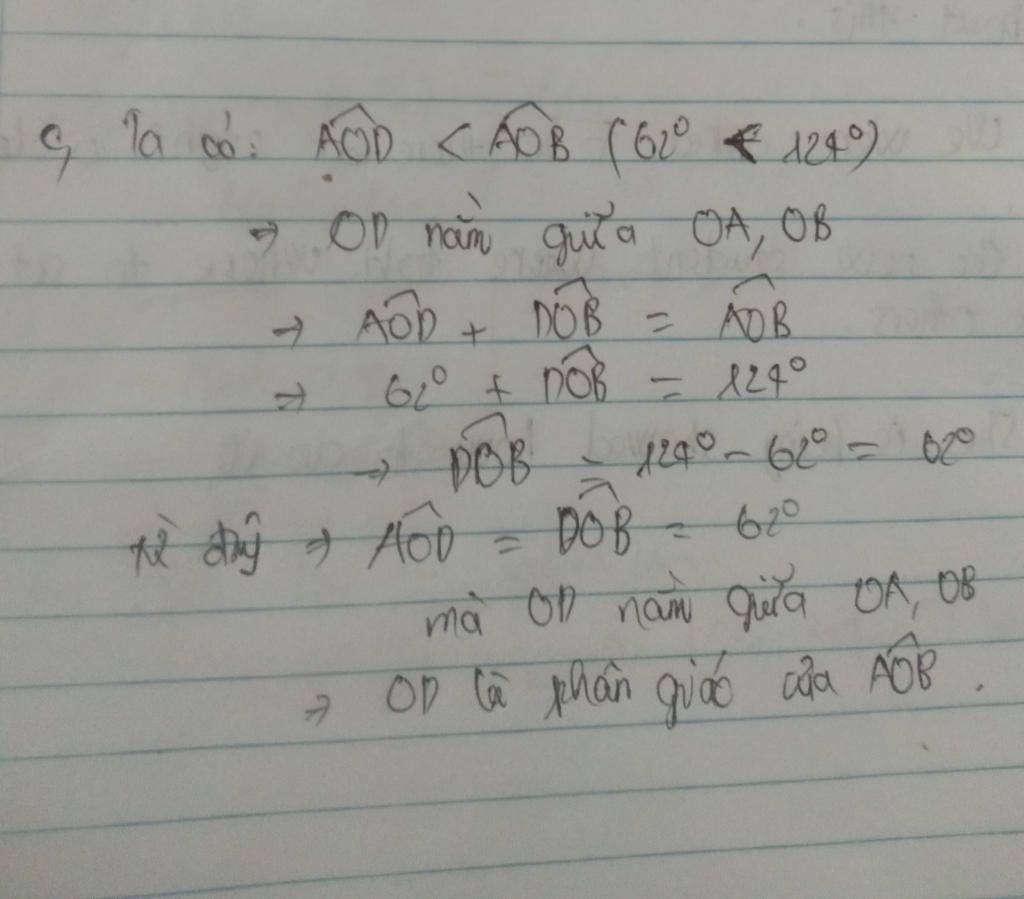 c, Ta có: AOD < AOB (62° < 124°)
⇒ OD nằm giữa OA, OB
⇒ AOD + DOB = AOB
⇒ 62° + DOB = 124°
⇒ DOB = 124° - 62° = 62°
từ đây ⇒ AOD = DOB = 62°
mà OD nằm giữa OA, OB
⇒ OD là phân giác của AOB.